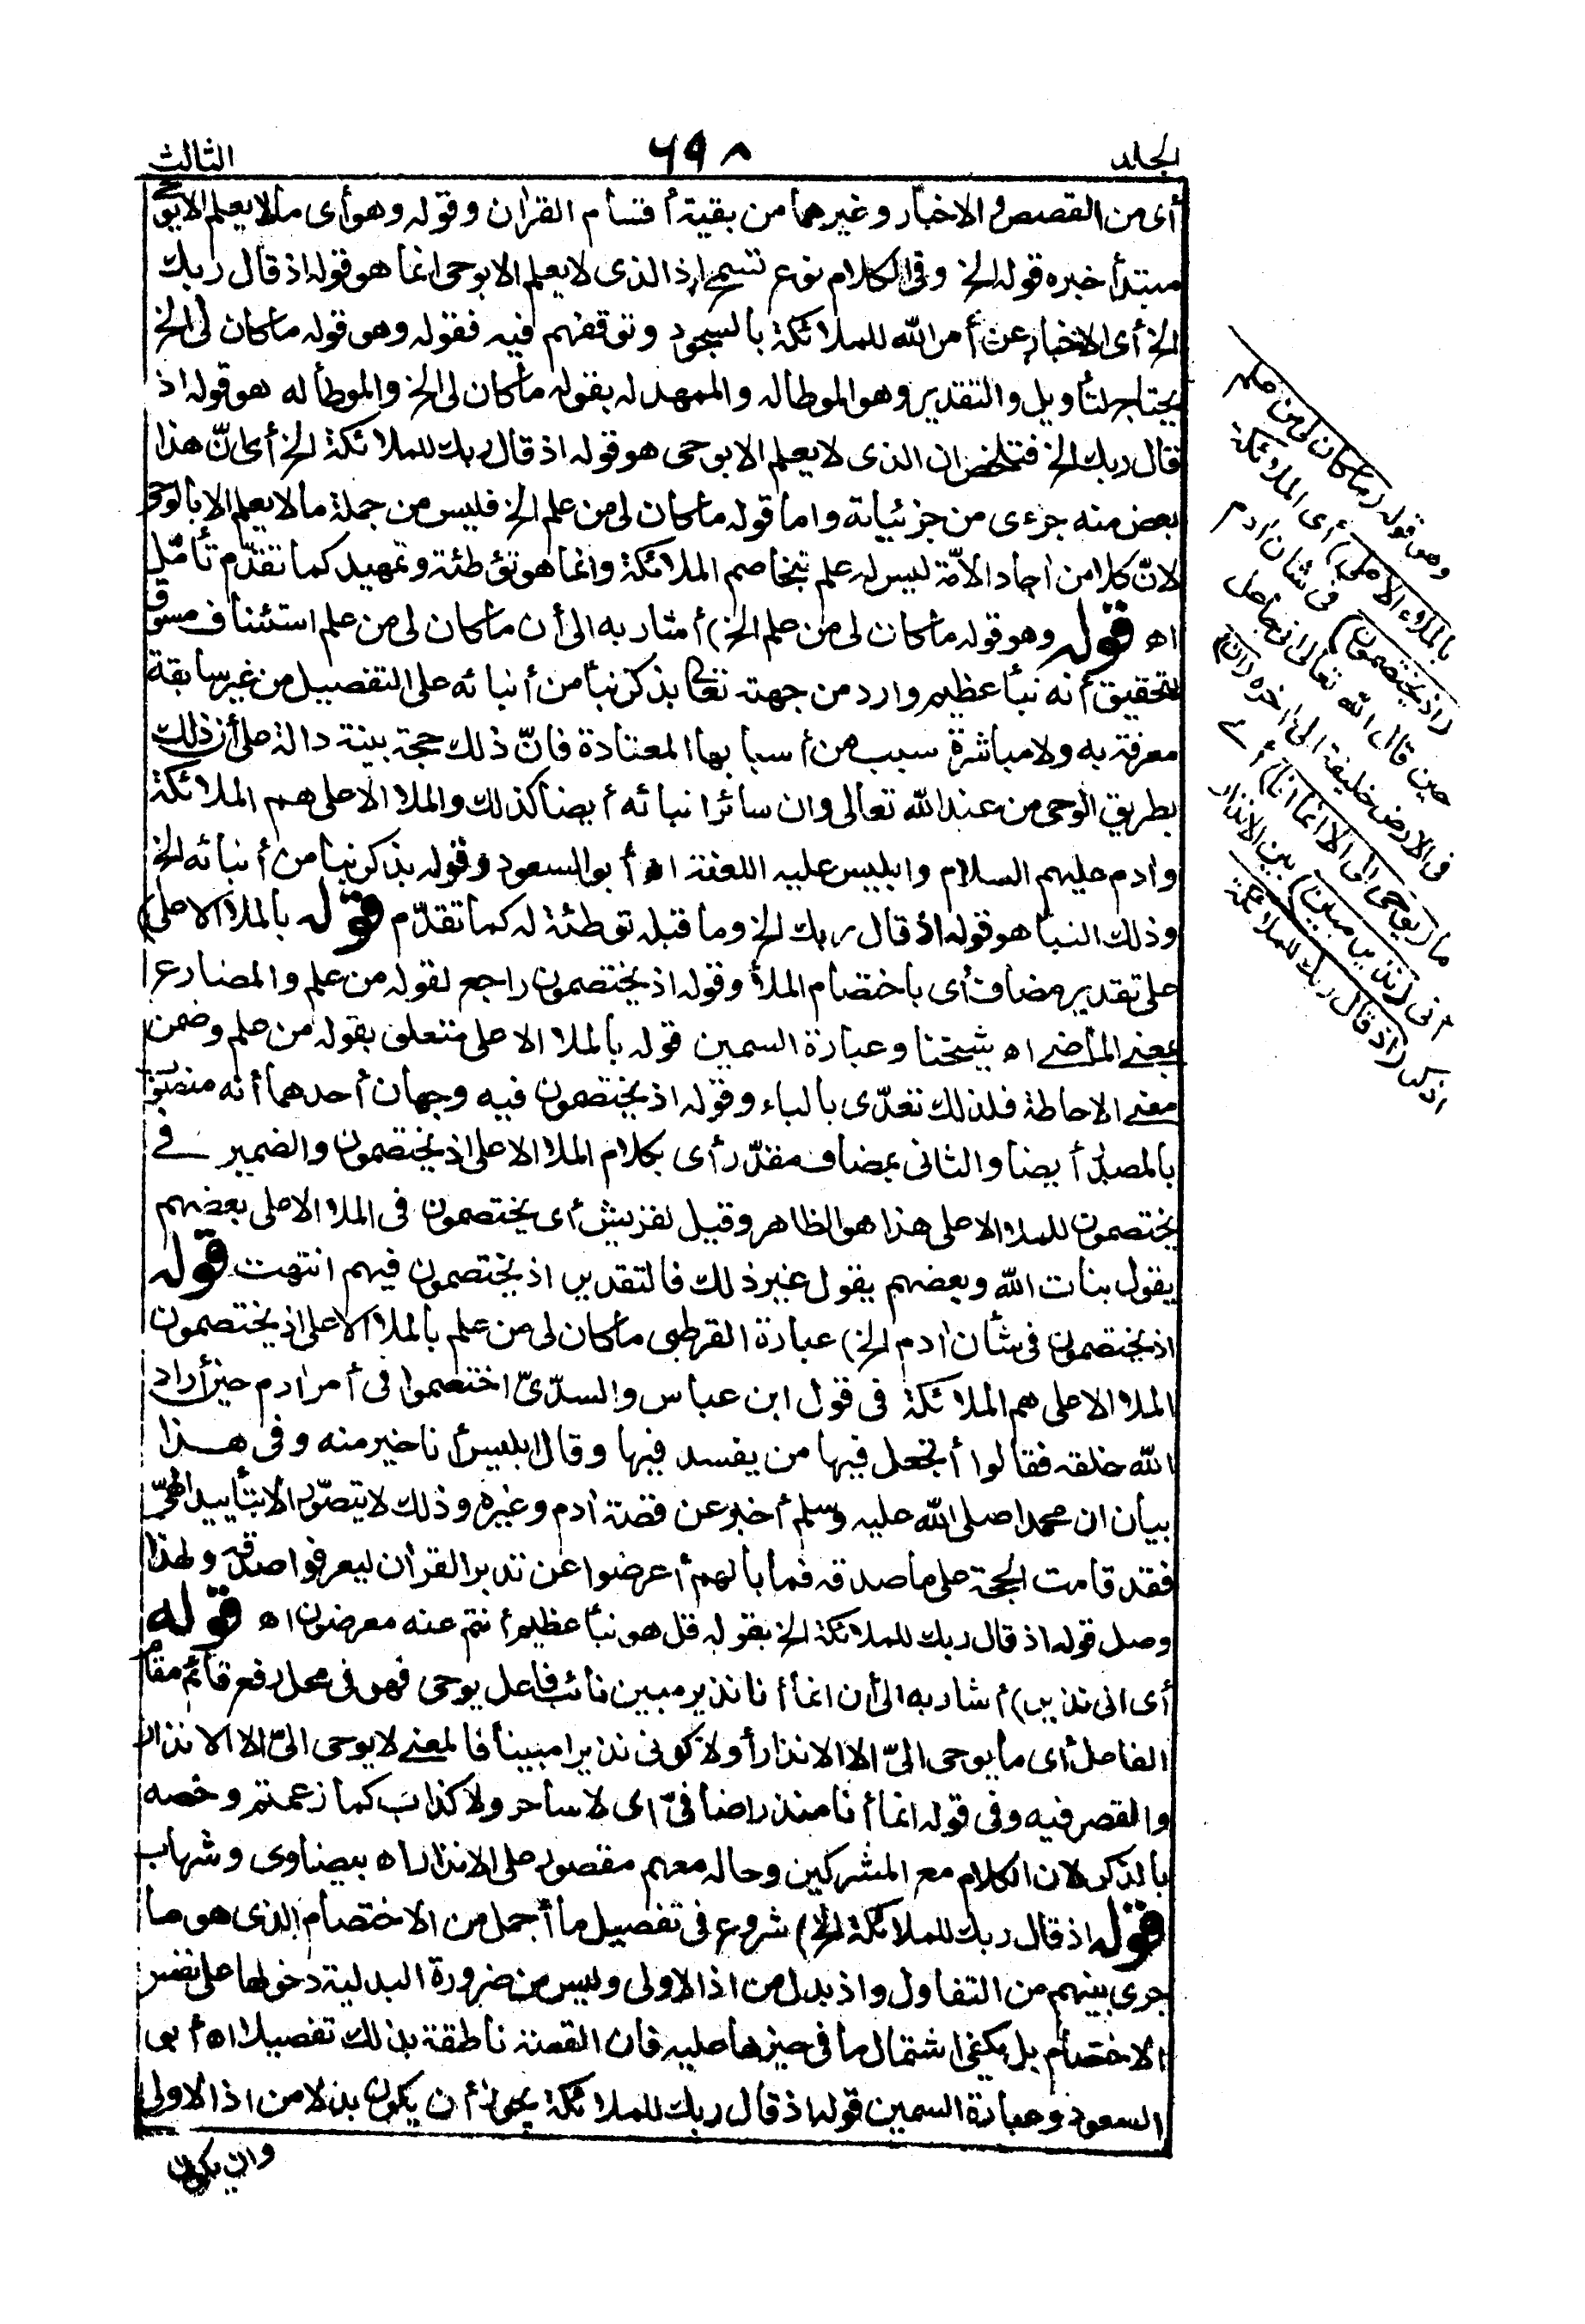 الجلد ٦٩٨ الثالث
أى من القصص والاخبار وغيرهما من بقية أقسام القرآن وقوله وهو أى ما لا يعلم الا بوحى
مبتدأ خبره قوله الخ وفى الكلام نوع تسمح اذ الذى لا يعلم الا بوحى انما هو قوله اذ قال ربك
الخ أى الاخبار عن أمر الله للملائكة بالسجود وتوقفهم فيه فقوله وهو قوله ما كان لى الخ
يحتاج لتأويل والتقدير وهو الموطاله والممهد له بقوله ما كان لى الخ والموطأ له هو قوله اذ
قال ربك الخ فتلخص ان الذى لا يعلم الا بوحى هو قوله اذ قال ربك للملائكة الخ أى انّ هذا
بعض منه جزءى من جزئياته واما قوله ما كان لى من علم الخ فليس من جملة ما لا يعلم الا بالوحى
لانّ كلا من احاد الامّة ليس له علم بتخاصم الملائكة وانما هو توطئة وتمهيد كما تقدّم تأمّل
اه قوله وهو قوله ما كان لى من علم الخ) أشار به الى أن ما كان لى من علم استئناف مسوق
لتحقيق أنه نبأ عظيم وارد من جهته تعالى بذكر نبأ من أنبائه على التفصيل من غير سابقة
معرفة به ولا مباشرة سبب من أسبابها المعتادة فانّ ذلك حجة بينة دالة على أن ذلك
بطريق الوحى من عند الله تعالى وان سائر انبائه أيضا كذلك والملا الاعلى هم الملائكة
وادم عليهم السلام وابليس عليه اللعنة اه أبو السعود وقوله بذكر نبا من أنبائه الخ
وذلك النبا هو قوله اذ قال ربك الخ وما قبله توطئة له كما تقدّم قوله بالملا الاعلى)
على تقدير مضاف أى باختصام الملأ وقوله اذ يختصمون راجع لقوله من علم والمضارع
بمعنى الماضى اه شيخنا وعبارة السمين قوله بالملا الاعلى متعلق بقوله من علم وضمن
معنى الاحاطة فلذلك تعدّى بالباء وقوله اذ يختصمون فيه وجهان أحدهما أنه منصوب
بالمصدر أيضا والثانى بمضاف مقدّر أى بكلام الملا الاعلى اذ يختصمون والضمير فى
يختصمون للملا الاعلى هذا هو الظاهر وقيل لقريش أى يختصمون فى الملا الاعلى بعضهم
يقول بنات الله وبعضهم يقول غير ذلك فالتقدير اذ يختصمون فيهم انتهت قوله
اذ يختصمون فى شأن ادم الخ) عبارة القرطبى ما كان لى من علم بالملا الاعلى اذ يختصمون
الملا الاعلى هم الملائكة فى قول ابن عباس والسدّىّ اختصموا فى أمر ادم حين أراد
الله خلقه فقالوا أتجعل فيها من يفسد فيها وقال ابليس أنا خير منه وفى هذا
بيان ان محمدا صلى الله عليه وسلم أخبر عن قصة ادم وغيره وذلك لا يتصوّر الا بتأييد الهىّ
فقد قامت الحجة على ما صدقه فما بالهم أعرضوا عن تدبر القرآن ليعرفوا صدقه ولهذا
وصل قوله اذ قال ربك للملائكة الخ بقوله قل هو نبأ عظيم أنتم عنه معرضون اه قوله
أى انى نذير) أشار به الى أن انما أنا نذير مبين نائب فاعل يوحى فهو فى محل رفع قائم مقام
الفاعل أى ما يوحى الىّ الا الانذار أو لا كونى نذيرا مبينا فالمعنى لا يوحى الىّ الا الانذار
والقصر فيه وفى قوله انما أنا منذر اضافىّ اى لا ساحر ولا كذاب كما زعمتم وخصه
بالذكر لان الكلام مع المشركين وحاله معهم مقصور على الانذار اه بيضاوى وشهاب
قوله اذ قال ربك للملائكة الخ) شروع فى تفصيل ما أجمل من الاختصام الذى هو ما
جرى بينهم من التقاول واذ بدل من اذ الاولى وليس من ضرورة البدلية دخولها على نفس
الاختصام بل يكفى اشتمال ما فى حيزها عليه فان القصة ناطقة بذلك تفصيلا اه أبى
السعود وعبارة السمين قوله اذ قال ربك للملائكة يجوز أن يكون بدلا من اذ الاولى
وان يكون
وهو قوله (ما كان لى من علم
بالملاء الاعلى) أى الملائكة
(اذ يختصمون) فى شان ادم
حين قال الله تعالى انى جاعل
فى الارض خليفة الى اخره (ان)
ما (يوحى الى الا انما أنا) أى
انى (نذير مبين) بين الانذار
اذكر (اذ قال ربك للملائكة